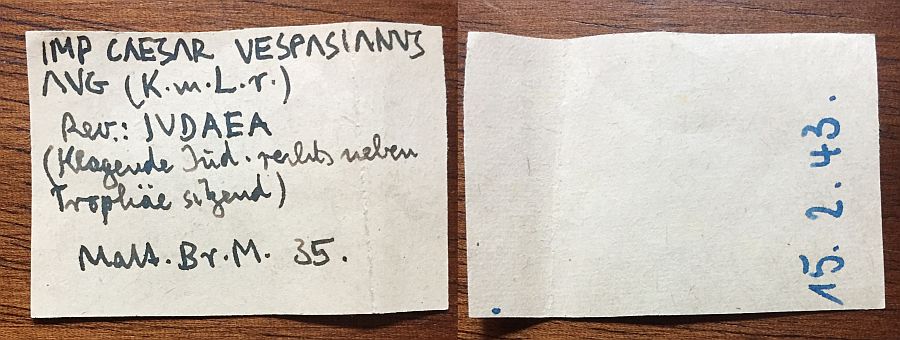 IMP CAESAR VESPASIANVS
AVG (K.m.L.r.)
Rev.: JVDAEA
(Klagende Jüd. rechts neben
Trophäe sitzend)
Matt. Br. M. 35.
15. 2. 43.